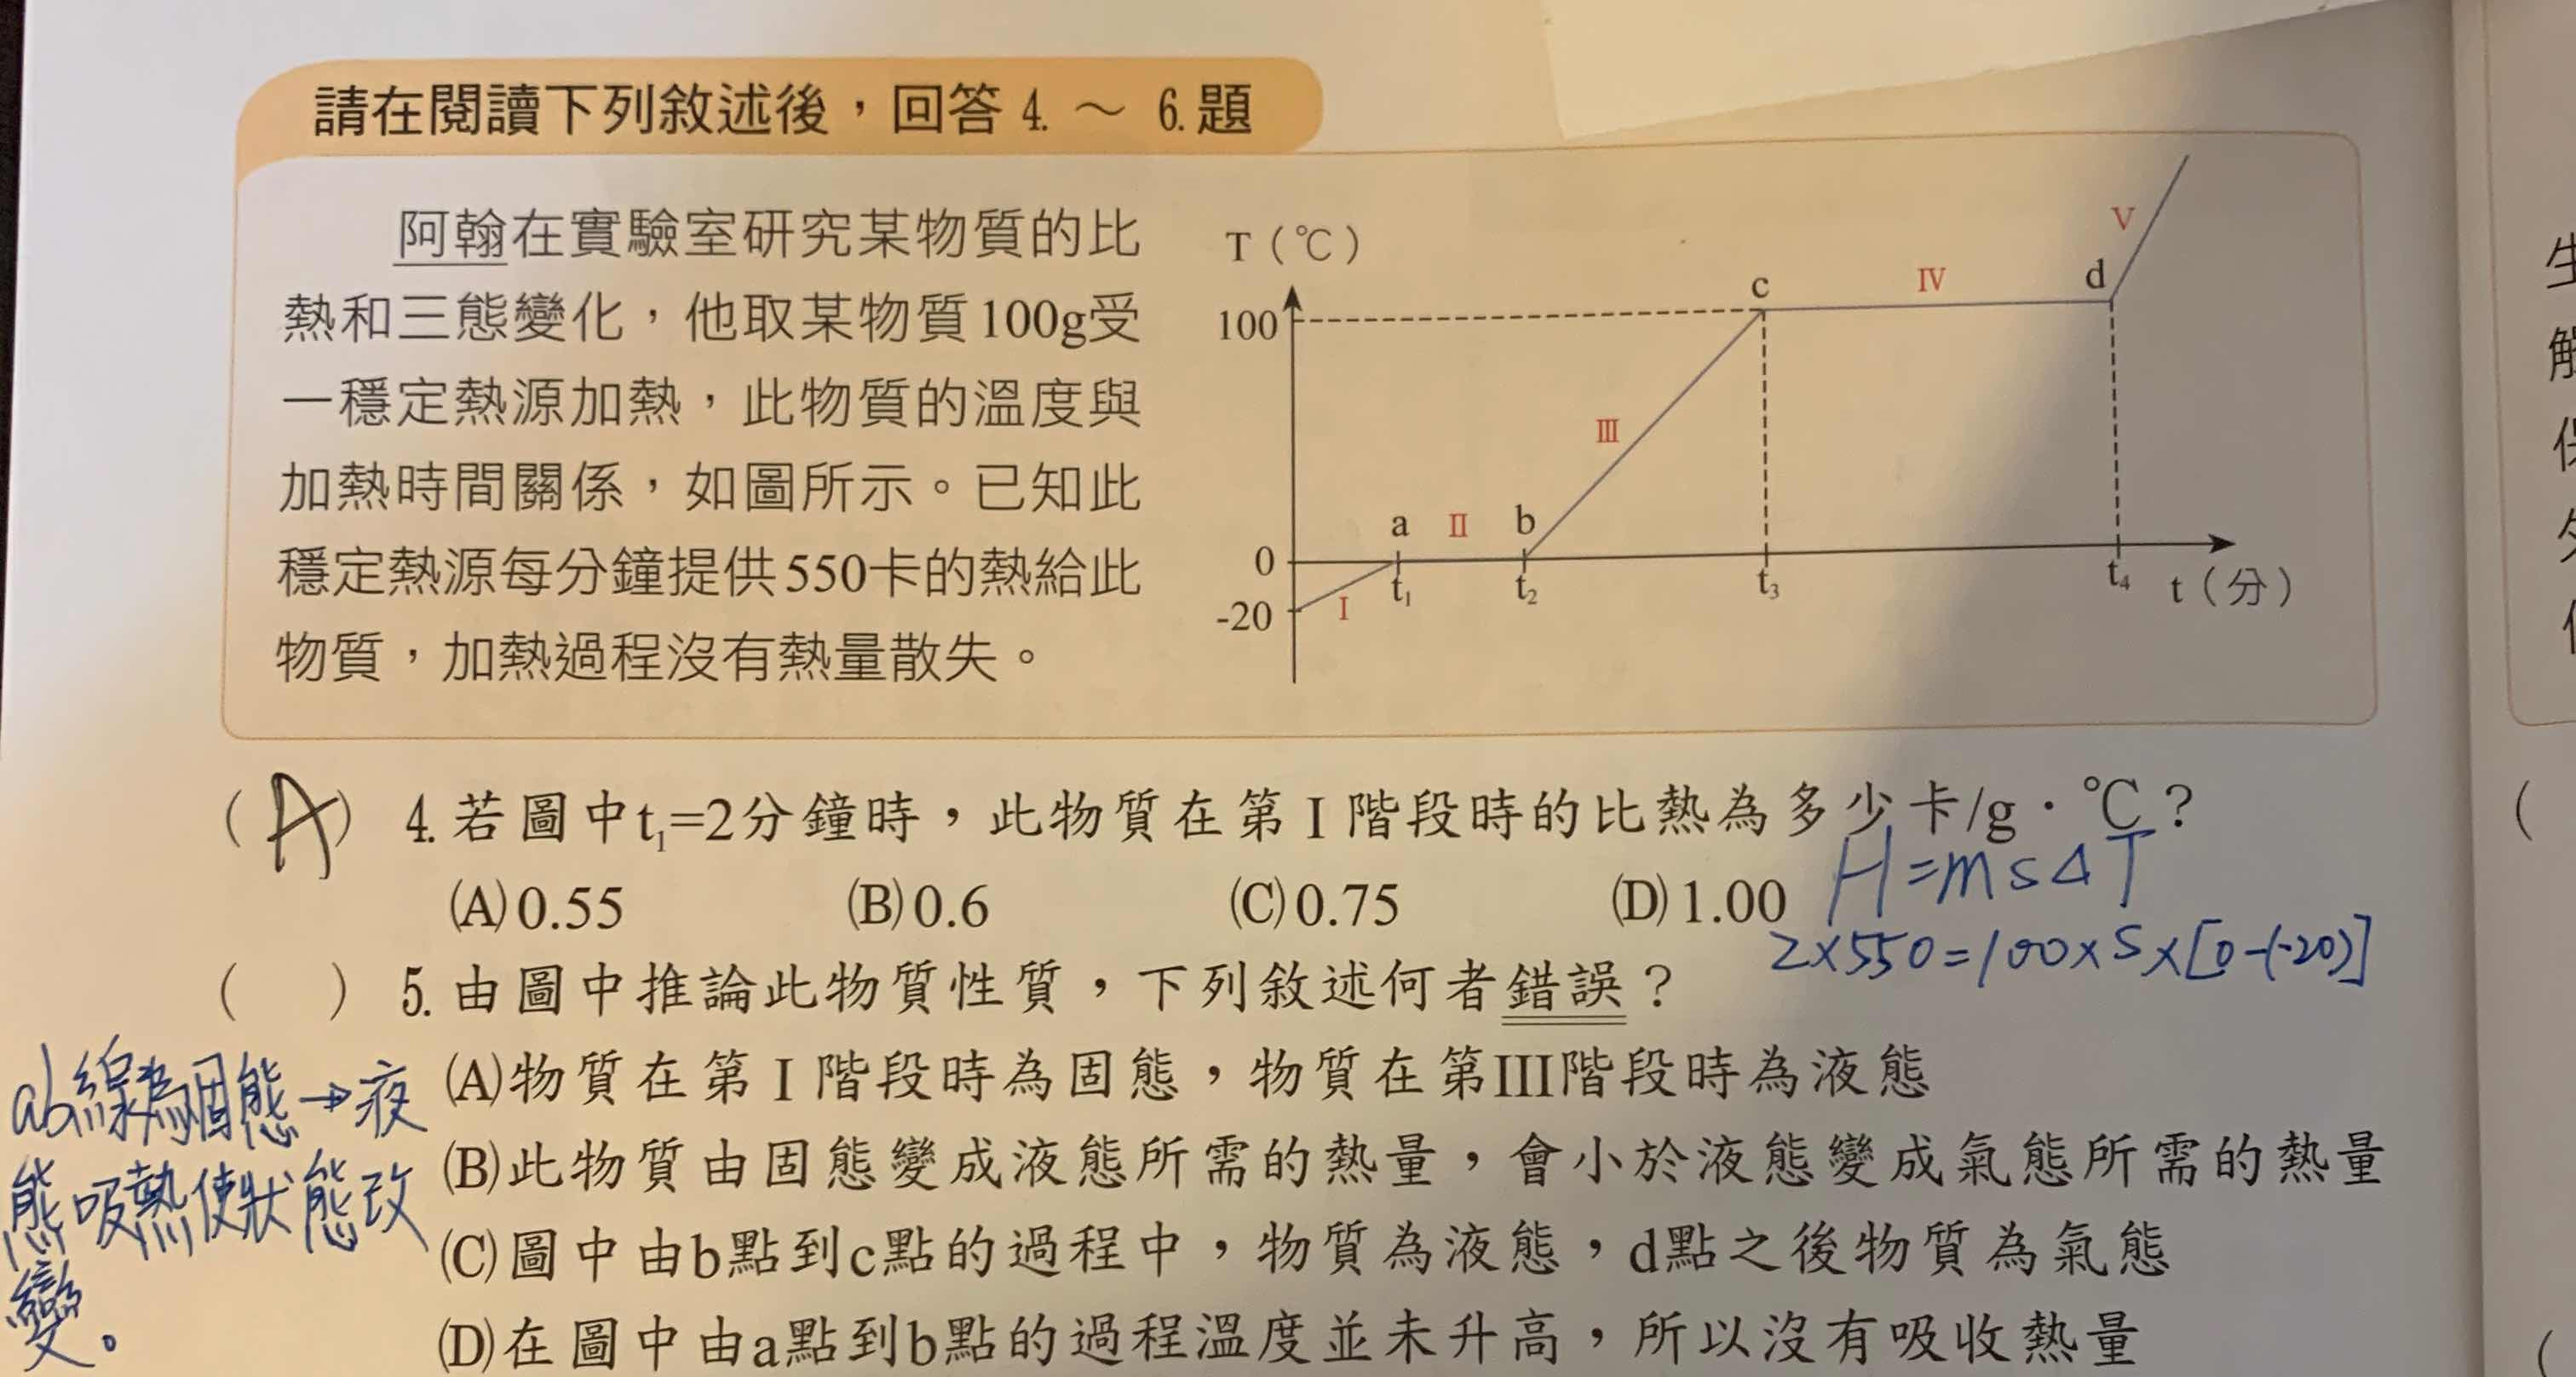 請在閱讀下列敘述後，回答 4. ～ 6. 題
阿翰在實驗室研究某物質的比
熱和三態變化，他取某物質100g受
一穩定熱源加熱，此物質的溫度與
加熱時間關係，如圖所示。已知此
穩定熱源每分鐘提供550卡的熱給此
物質，加熱過程沒有熱量散失。
T（℃）
100
0
-20
a
b
c
d
I
II
III
IV
V
t₁
t₂
t₃
t₄
t（分）
（A）4. 若圖中t₁=2分鐘時，此物質在第I階段時的比熱為多少卡/g·℃？
(A)0.55 (B)0.6 (C)0.75 (D)1.00
H=msΔT
2×550=100×S×[0-(-20)]
（ ）5. 由圖中推論此物質性質，下列敘述何者錯誤？
(A)物質在第I階段時為固態，物質在第III階段時為液態
(B)此物質由固態變成液態所需的熱量，會小於液態變成氣態所需的熱量
(C)圖中由b點到c點的過程中，物質為液態，d點之後物質為氣態
(D)在圖中由a點到b點的過程溫度並未升高，所以沒有吸收熱量
ab線為固態→液
態吸熱使狀態改
變。
生
保
（
（